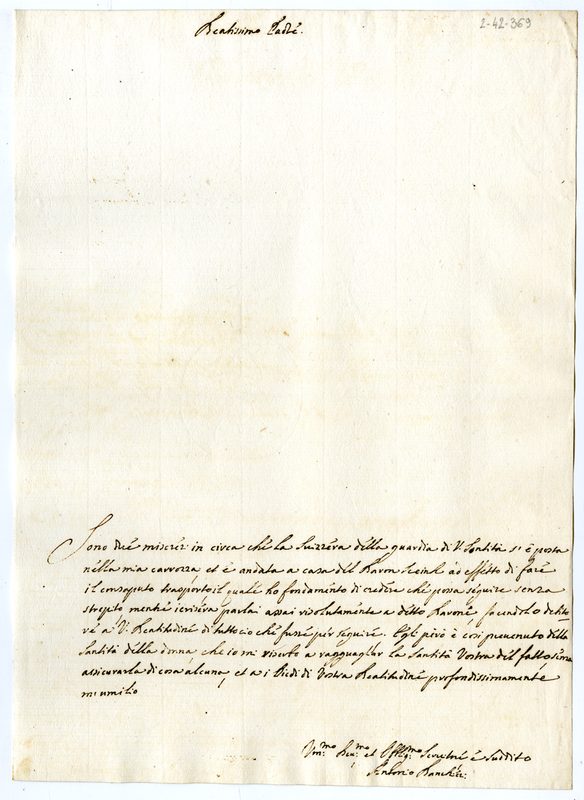 Beatissimo Padre.
2-42-369
Sono due miserere in circa che la Suizzera della guardia di V. Santità s'è posta
nella mia carrozza et è andata a casa del Baron ad effetto di fare
il consaputo trasporto il quale ho fondamento di credere che possa seguire senza
strepito mentre iersera parlai assai risolutamente a detto Barone, facendolo
a V. Beatitudine di tutto ciò che fusse per seguire. Egli però è così preuenuto della
Santità della donna che io mi riserbo a ragguagliar la Santità Vostra del fatto senza
assicurarla di cosa alcuna, et a i Piedi di Vostra Beatitudine profondissimamente
m'umilio
Um.mo et Obblig.mo Seruitore e Suddito
Antonio